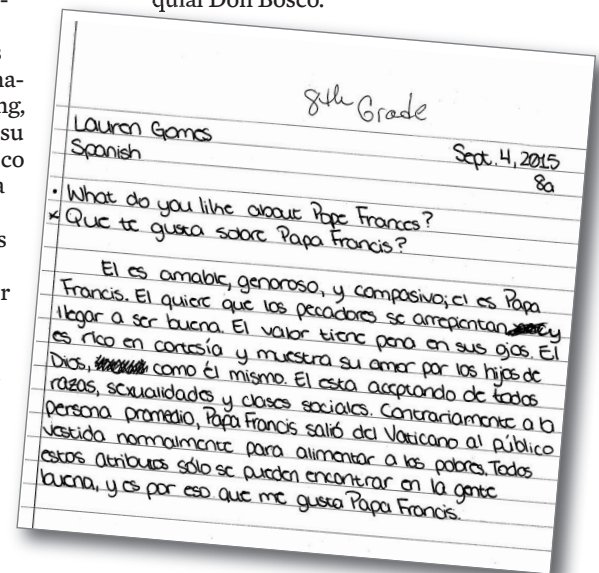 quial Don Bosco.
s
na-
ng,
su
co
a
s
r
8th Grade
Lauren Gomes
Sept. 4, 2015
Spanish
8a
• What do you like about Pope Frances?
* Que te gusta sobre Papa Francis?
El es amable, genoroso, y compasivo; el es Papa
Francis. El quiere que los pecadores se arrepientan y
llegar a ser buena. El valor tiene pena en sus ojos. El
es rico en cortesía y muestra su amor por los hijos de
Dios, como él mismo. El esta aceptando de todos
razas, sexualidades y clases sociales. Contrariamente a la
persona promedio, Papa Francis salió del Vaticano al público
vestida normalmente para alimentar a los pobres. Todas
estos atributos sólo se pueden encontrar en la gente
buena, y es por eso que me gusta Papa Francis.